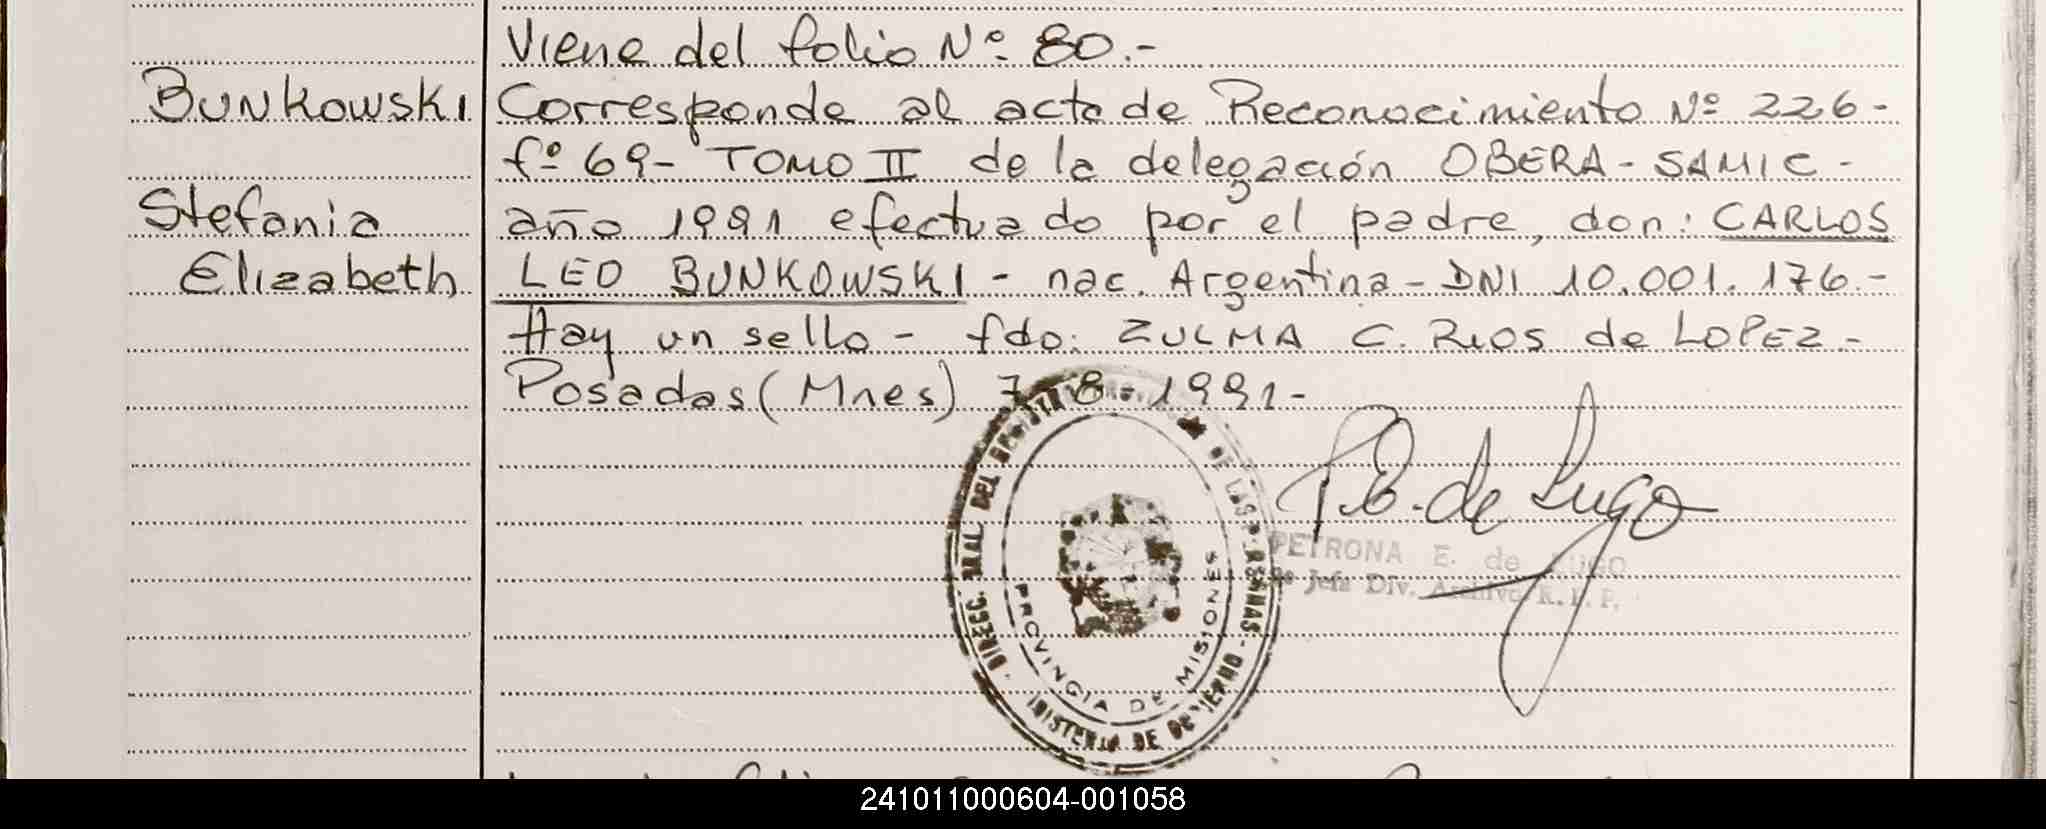 Viene del folio Nº 80.-
Bunkowski Corresponde al acta de Reconocimiento Nº 226-
fº 69- TOMO II de la delegación OBERA - SAMIC -
Stefania año 1991 efectuado por el padre, don: CARLOS
Elizabeth LEO BUNKOWSKI - nac. Argentina - DNI 10.001.176.-
Hay un sello - fdo: ZULMA C. RIOS de LOPEZ.-
Posadas (Mnes) 7-8-1991-
P.E. de Lugo
PETRONA E. de LUGO
Jefa Div. Archivo R. P. P.
DIRECC. GRAL DEL REGISTRO DE LAS PERSONAS -
MINISTERIO DE GOBIERNO -
PROVINCIA DE MISIONES
241011000604-001058